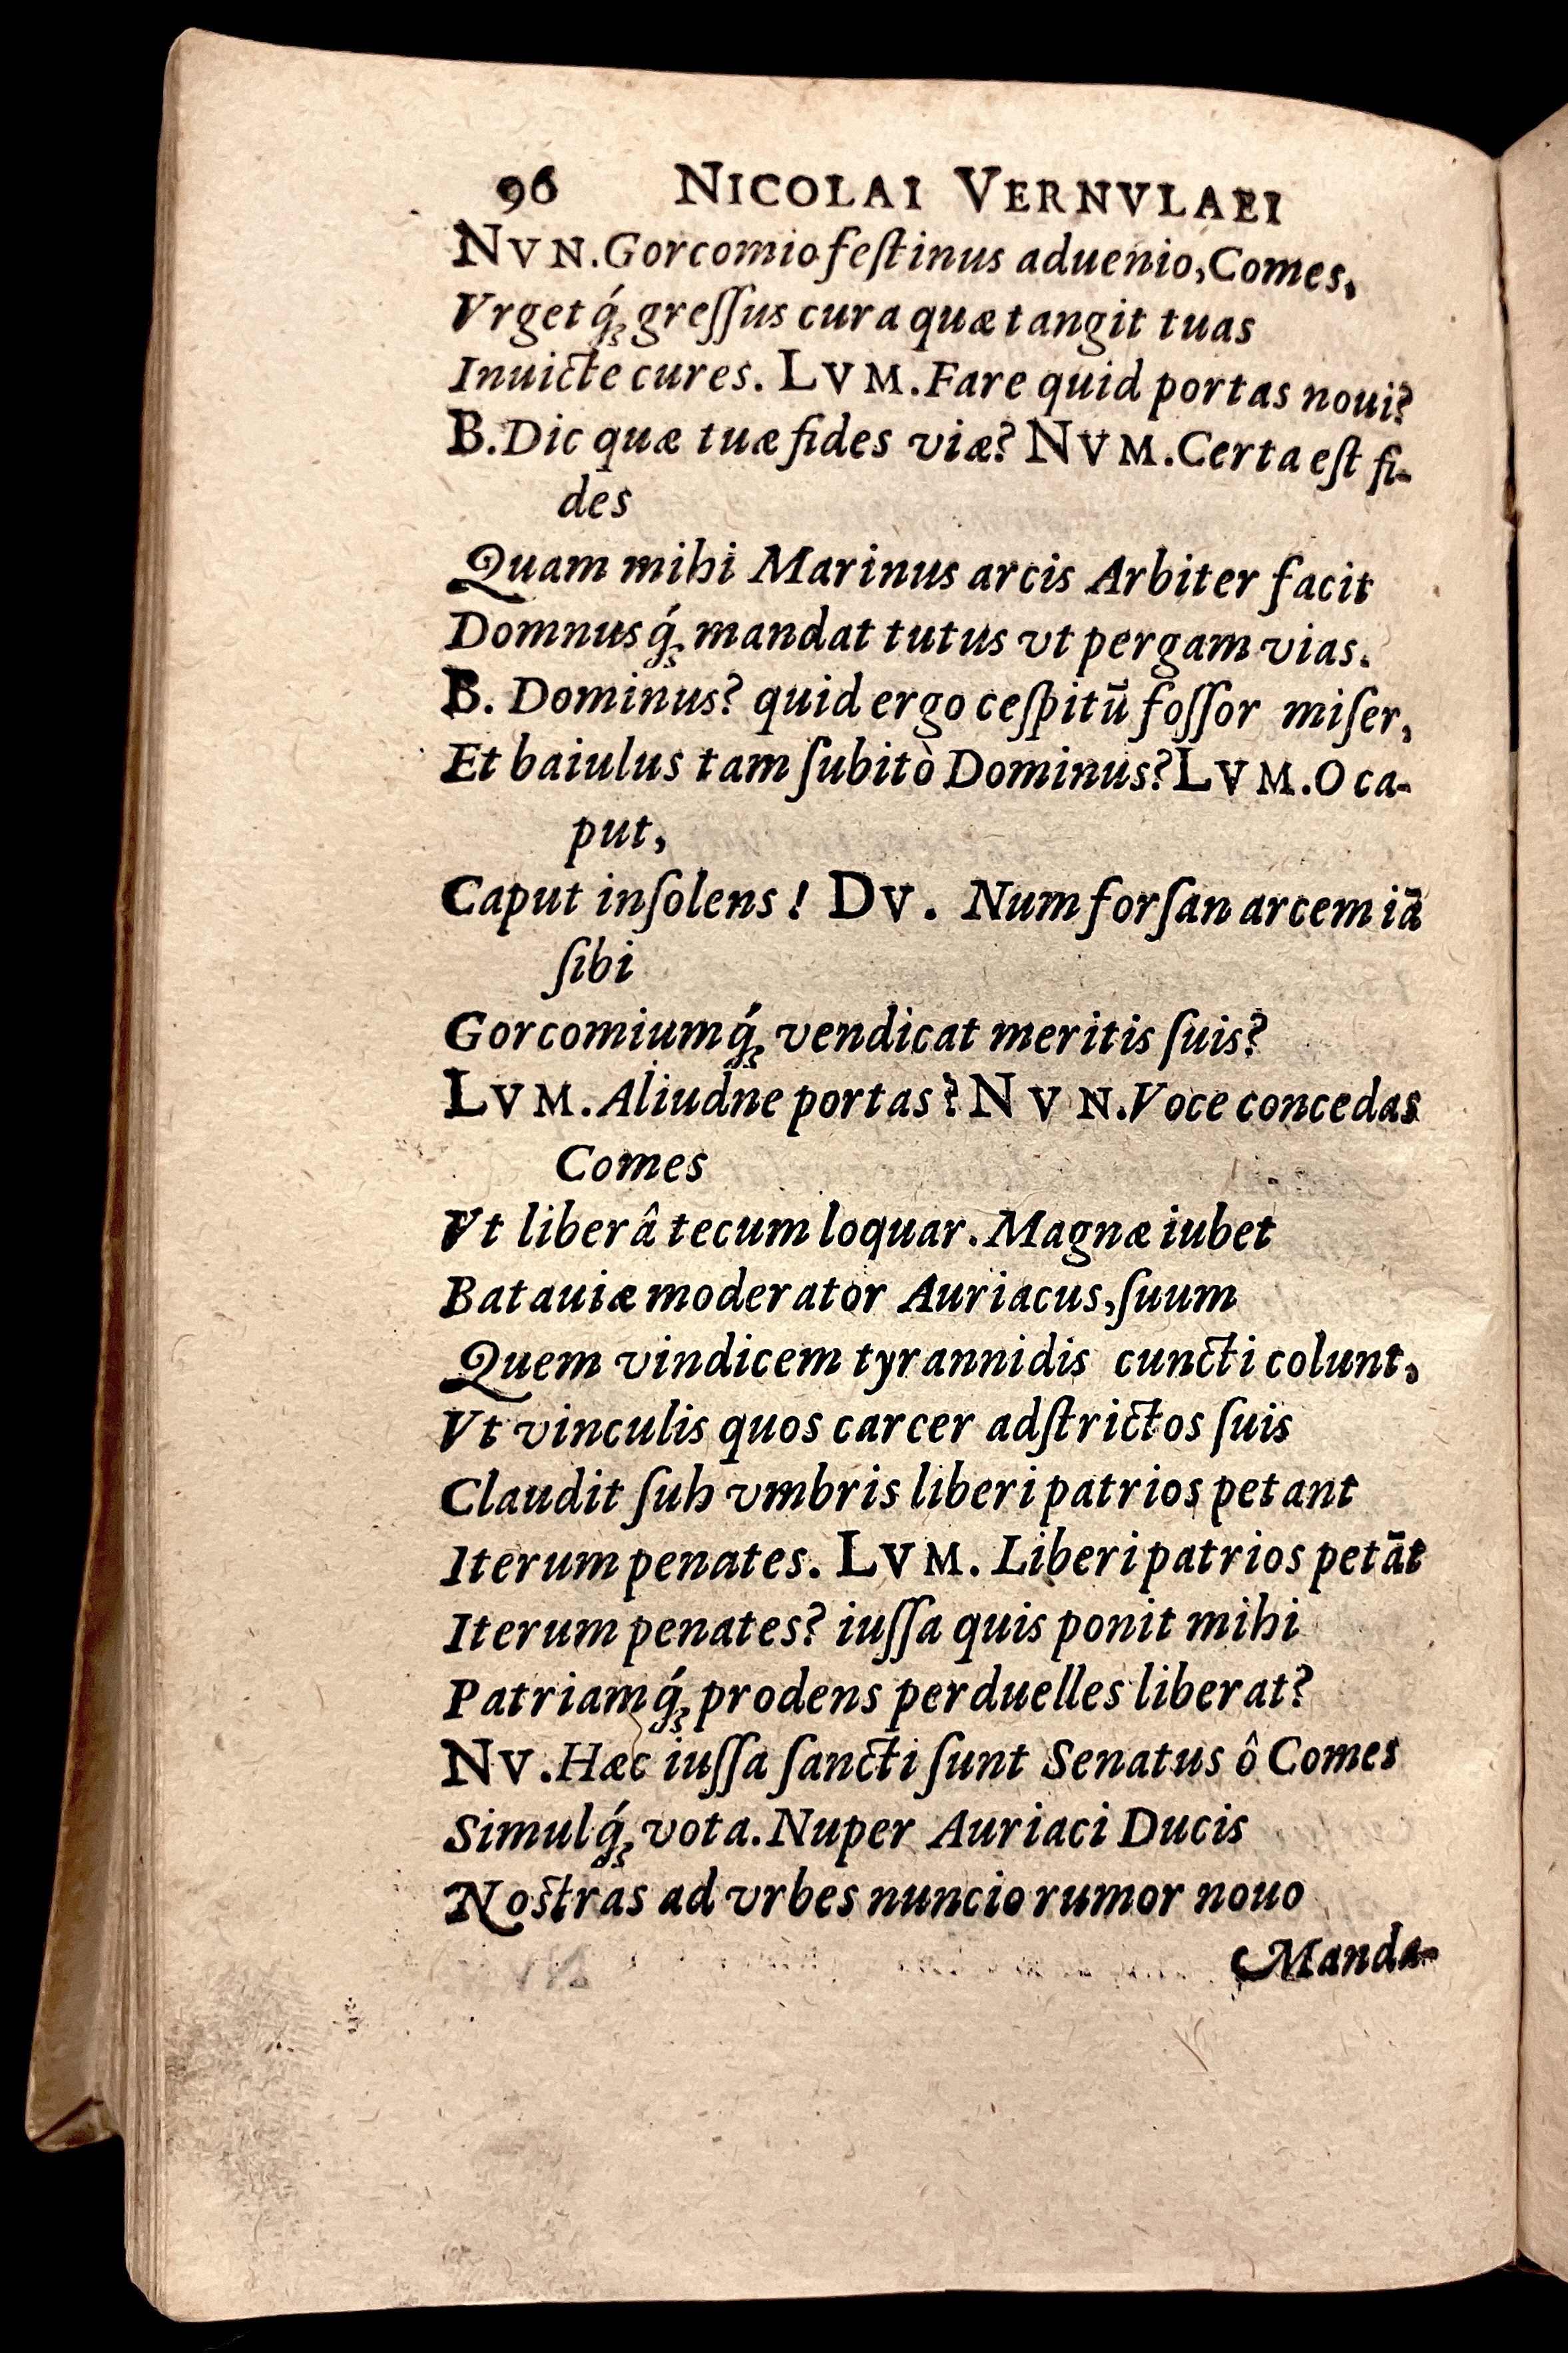 96 NICOLAI VERNVLAEI
NVN. Gorcomio feſtinus aduenio, Comes,
Vrgetq́ꝫ greſſus cura quæ tangit tuas
Inuicte cures. LVM. Fare quid portas noui?
B. Dic quæ tuæ fides viæ? NVM. Certa eſt fi-
des
Quam mihi Marinus arcis Arbiter facit
Domnusq́ꝫ mandat tutus vt pergam vias.
B. Dominus? quid ergo ceſpitū foſſor miſer,
Et baiulus tam ſubitò Dominus? LVM. O ca-
put,
Caput inſolens! DV. Num forſan arcem iā
ſibi
Gorcomiumq́ꝫ vendicat meritis ſuis?
LVM. Aliudne portas? NVN. Voce concedas
Comes
Vt liberâ tecum loquar. Magnæ iubet
Batauiæ moderator Auriacus, ſuum
Quem vindicem tyrannidis cuncti colunt,
Vt vinculis quos carcer adſtrictos ſuis
Claudit ſuh vmbris liberi patrios petant
Iterum penates. LVM. Liberi patrios petāt
Iterum penates? iuſſa quis ponit mihi
Patriamq́ꝫ prodens perduelles liberat?
NV. Hæc iuſſa ſancti ſunt Senatus ô Comes
Simulq́ꝫ vota. Nuper Auriaci Ducis
Noſtras ad vrbes nuncio rumor nouo
Manda-